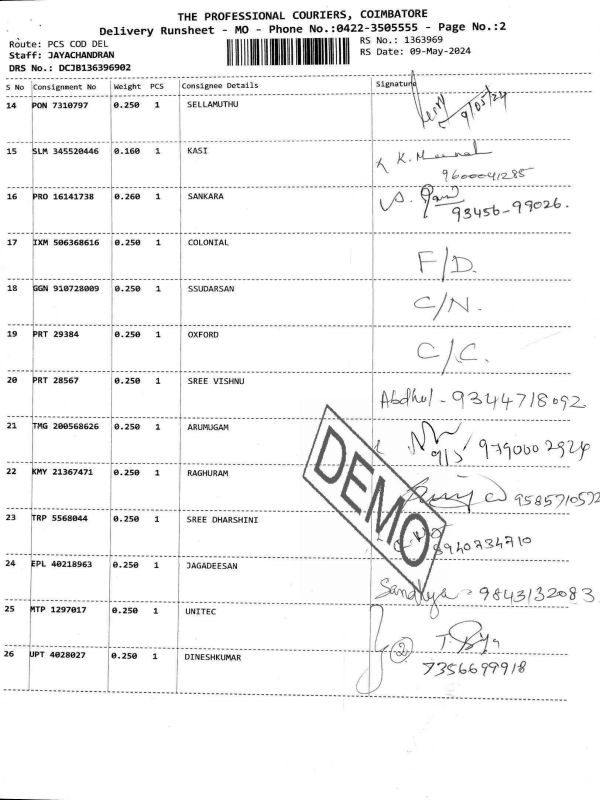 THE PROFESSIONAL COURIERS, COIMBATORE
Delivery Runsheet - MO - Phone No.:0422-3505555 - Page No.:2
Route: PCS COD DEL
RS No.: 1363969
Staff: JAYACHANDRAN
RS Date: 09-May-2024
DRS No.: DCJB136396902
S No Consignment No Weight PCS Consignee Details Signature
14 PON 7310797 0.250 1 SELLAMUTHU 9/05/24
15 SLM 345520446 0.160 1 KASI K.
9600041285
16 PRO 16141738 0.260 1 SANKARA
93456-99026.
17 IXM 506368616 0.250 1 COLONIAL F/D.
18 GGN 910728009 0.250 1 SSUDARSAN C/N.
19 PRT 29384 0.250 1 OXFORD C/C.
20 PRT 28567 0.250 1 SREE VISHNU Abdhul - 9344718092
21 TMG 200568626 0.250 1 ARUMUGAM 9/5 9790002924
22 KMY 21367471 0.250 1 RAGHURAM 9585710572
23 TRP 5568044 0.250 1 SREE DHARSHINI 8940734710
24 EPL 40218963 0.250 1 JAGADEESAN Sandhya - 9843132083
25 MTP 1297017 0.250 1 UNITEC
26 UPT 4028027 0.250 1 DINESHKUMAR 2
7356699918
DEMO